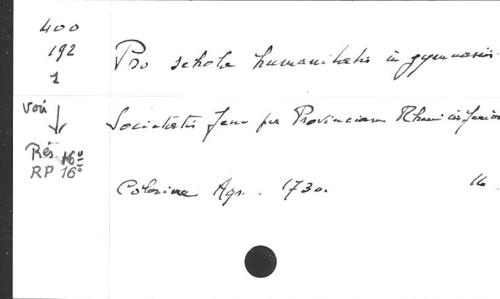 400
192
1
Pro schola humanitatis in gymnasiis
Voir
Societatis Jesu per Provinciam Rheni inferior
Rés 16°
RP 16°
Coloniae Agr. 1730. 16.